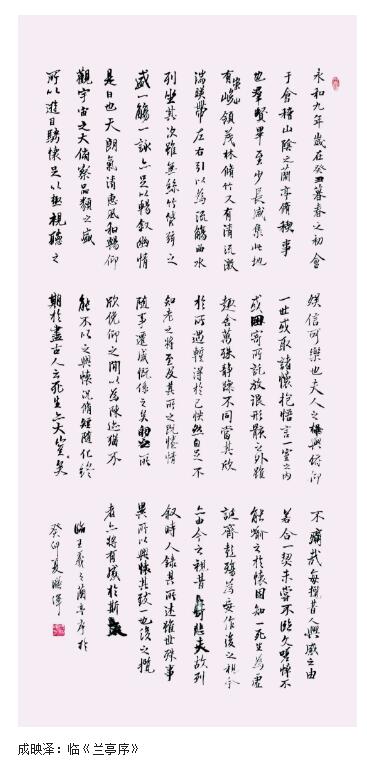 永和九年歲在癸丑暮春之初會
于會稽山陰之蘭亭脩稧事
也羣賢畢至少長咸集此地
有崇山峻領茂林脩竹又有清流激
湍暎帶左右引以為流觴曲水
列坐其次雖無絲竹管弦之
盛一觴一詠亦足以暢敘幽情
是日也天朗氣清惠風和暢仰
觀宇宙之大俯察品類之盛
所以遊目騁懷足以極視聽之
娛信可樂也夫人之相與俯仰
一世或取諸懷抱悟言一室之內
或因寄所託放浪形骸之外雖
趣舍萬殊靜躁不同當其欣
於所遇暫得於己快然自足不
知老之將至及其所之既惓情
隨事遷感慨係之矣向之所
欣俛仰之間以為陳迹猶不
能不以之興懷況脩短隨化終
期於盡古人云死生亦大矣
不痛哉每攬昔人興感之由
若合一契未嘗不臨文嗟悼不
能喻之於懷固知一死生為虛
誕齊彭殤為妄作後之視今
亦由今之視昔悲夫故列
敘時人錄其所述雖世殊事
異所以興懷其致一也後之攬
者亦將有感於斯
臨王羲之蘭亭序於
癸卯夏
成映泽：临《兰亭序》